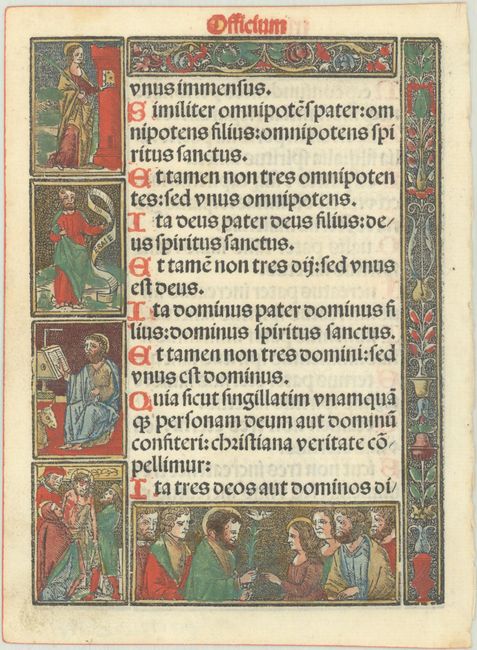 Officium
vnus immensus.
Similiter omnipotēs pater:om
nipotens filius:omnipotens spi
ritus sanctus.
Et tamen non tres omnipoten
tes:sed vnus omnipotens.
Ita deus pater deus filius:de/
us spiritus sanctus.
Et tamē non tres dij:sed vnus
est deus.
Ita dominus pater dominus fi
lius:dominus spiritus sanctus.
Et tamen non tres domini:sed
vnus est dominus.
Quia sicut singillatim vnamquā
qꝫ personam deum aut dominū
confiteri:christiana veritate cō
pellimur:
Ita tres deos aut dominos di/